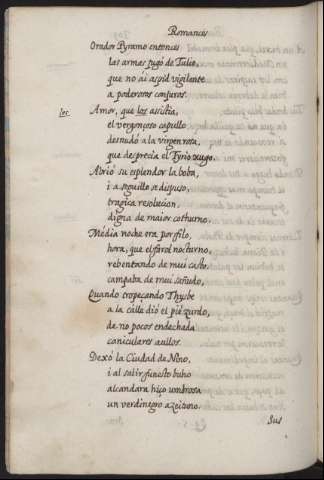 Romances
Orador Pyramo entonces
las armes jugó de Tulio,
que no ai aspid vigilante
a poderosos conjuros.
les. Amor, que los assistia,
el vergonçoso capullo
desnudó a la virgen rosa,
que desprecia el Tyrio xugo.
Abrió su esplendor la boba,
i a seguillo se dispuso,
tragica resolucion,
digna de maior coturno.
Media noche era por filo,
hora, que el farol nocturno,
rebentando de mui casto
campaba de mui sañudo,
Quando tropeçando Thysbe
a la calle dió el pie zurdo,
de no pocos endechada
caniculares aullos.
Dexó la Ciudad de Nino,
i al salir funesto buho
alcandara hiço umbrosa
un verdinegro azeituno.
Sus